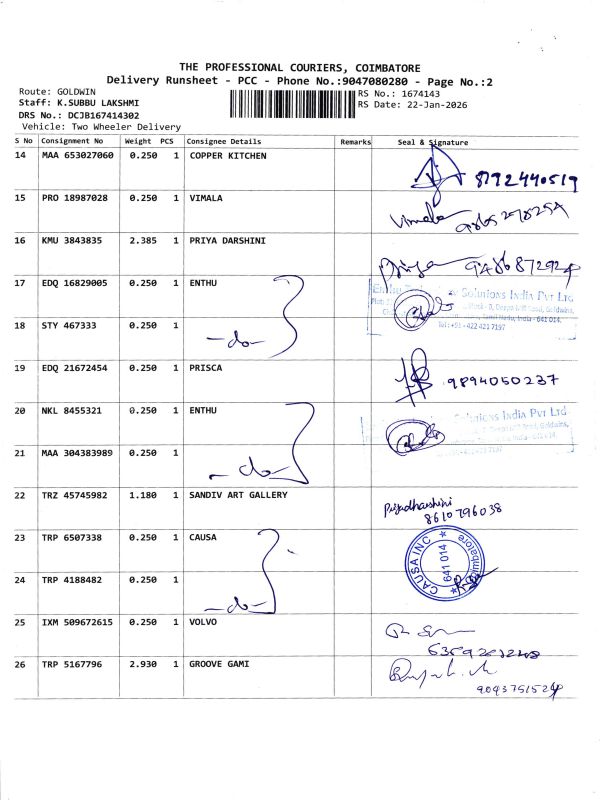 THE PROFESSIONAL COURIERS, COIMBATORE
Delivery Runsheet - PCC - Phone No.:9047080280 - Page No.:2
Route: GOLDWIN
RS No.: 1674143
Staff: K.SUBBU LAKSHMI
RS Date: 22-Jan-2026
DRS No.: DCJB167414302
Vehicle: Two Wheeler Delivery
S No Consignment No Weight PCS Consignee Details Remarks Seal & Signature
14 MAA 653027060 0.250 1 COPPER KITCHEN 8792440519
15 PRO 18987028 0.250 1 VIMALA Vimala
16 KMU 3843835 2.385 1 PRIYA DARSHINI Priya
17 EDQ 16829005 0.250 1 ENTHU Solutions India Pvt Ltd
Tamil Nadu, India - 641 014.
Tel : +91 - 422 421 7197
18 STY 467333 0.250 1 -do-
19 EDQ 21672454 0.250 1 PRISCA 9894050237
20 NKL 8455321 0.250 1 ENTHU Solutions India Pvt Ltd
21 MAA 304383989 0.250 1 -do-
22 TRZ 45745982 1.180 1 SANDIV ART GALLERY Priyadharshini
8610796038
23 TRP 6507338 0.250 1 CAUSA CAUSA INC * Coimbatore * 641 014
24 TRP 4188482 0.250 1 -do-
25 IXM 509672615 0.250 1 VOLVO
26 TRP 5167796 2.930 1 GROOVE GAMI